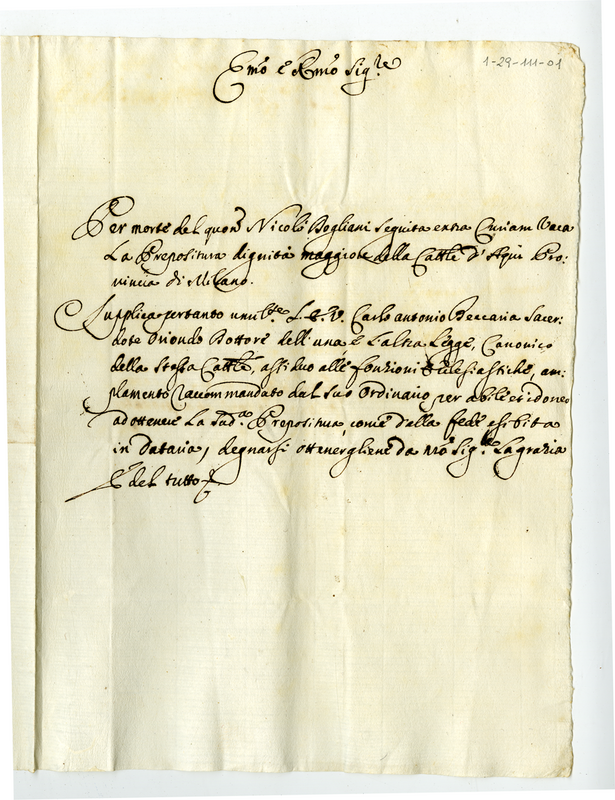 Emo e Rmo Sig.re
1-29-111-01
Per morte del quon Nicolò Bogliani seguita extra Curiam Vaca
La Prepositura dignità maggiore della Cattle d'Aqui Pro:
vincia di Milano.
Supplica pertanto umilte. L'E. V. Carlo Antonio Beccaria Sacer:
dote Oriondo Dottore dell'una e L'altra Legge, Canonico
della Stessa Cattle, assiduo alle fonzioni Ecclesiastiche, am:
plamente raccommandato dal suo Ordinario per abile et idoneo
ad ottenere La Sud.a Prepositura, come dalla fede esibita
in Dataria, degnarsi ottenergliene da Nro Sig.re La grazia
E del tutto